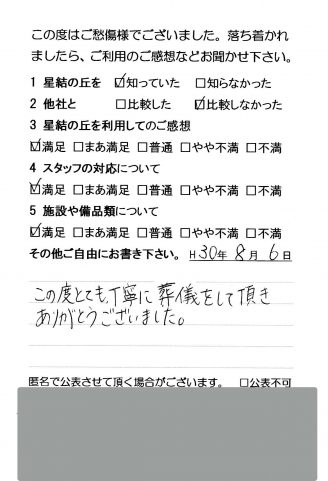 この度はご愁傷様でございました。落ち着かれ
ましたら、ご利用のご感想などお聞かせ下さい。
1 星結の丘を ☑知っていた □知らなかった
2 他社と □比較した ☑比較しなかった
3 星結の丘を利用してのご感想
☑満足 □まあ満足 □普通 □やや不満 □不満
4 スタッフの対応について
☑満足 □まあ満足 □普通 □やや不満 □不満
5 施設や備品類について
☑満足 □まあ満足 □普通 □やや不満 □不満
その他ご自由にお書き下さい。 H30年8月6日
この度とても、丁寧に葬儀をして頂き
ありがとうございました。
匿名で公表させて頂く場合がございます。 □公表不可